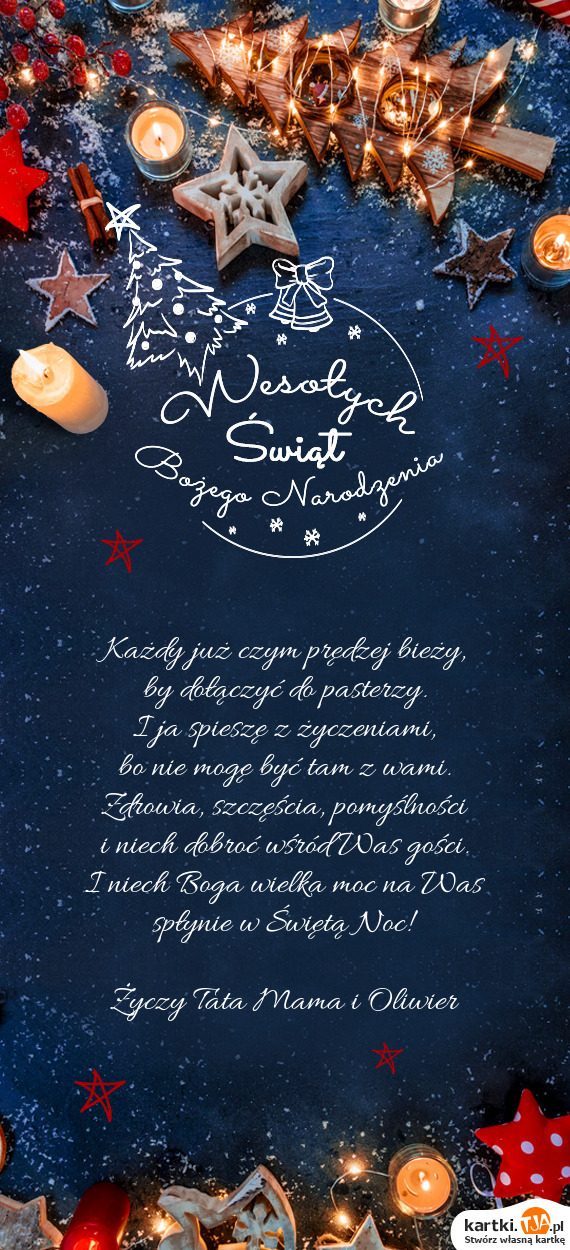 Wesołych
Świąt
Bożego Narodzenia
Każdy już czym prędzej bieży,
by dołączyć do pasterzy.
I ja spieszę z życzeniami,
bo nie mogę być tam z wami.
Zdrowia, szczęścia, pomyślności
i niech dobroć wśród Was gości.
I niech Boga wielka moc na Was
spłynie w Świętą Noc!
Życzy Tata Mama i Oliwier
kartki.TJA.pl
Stwórz własną kartkę